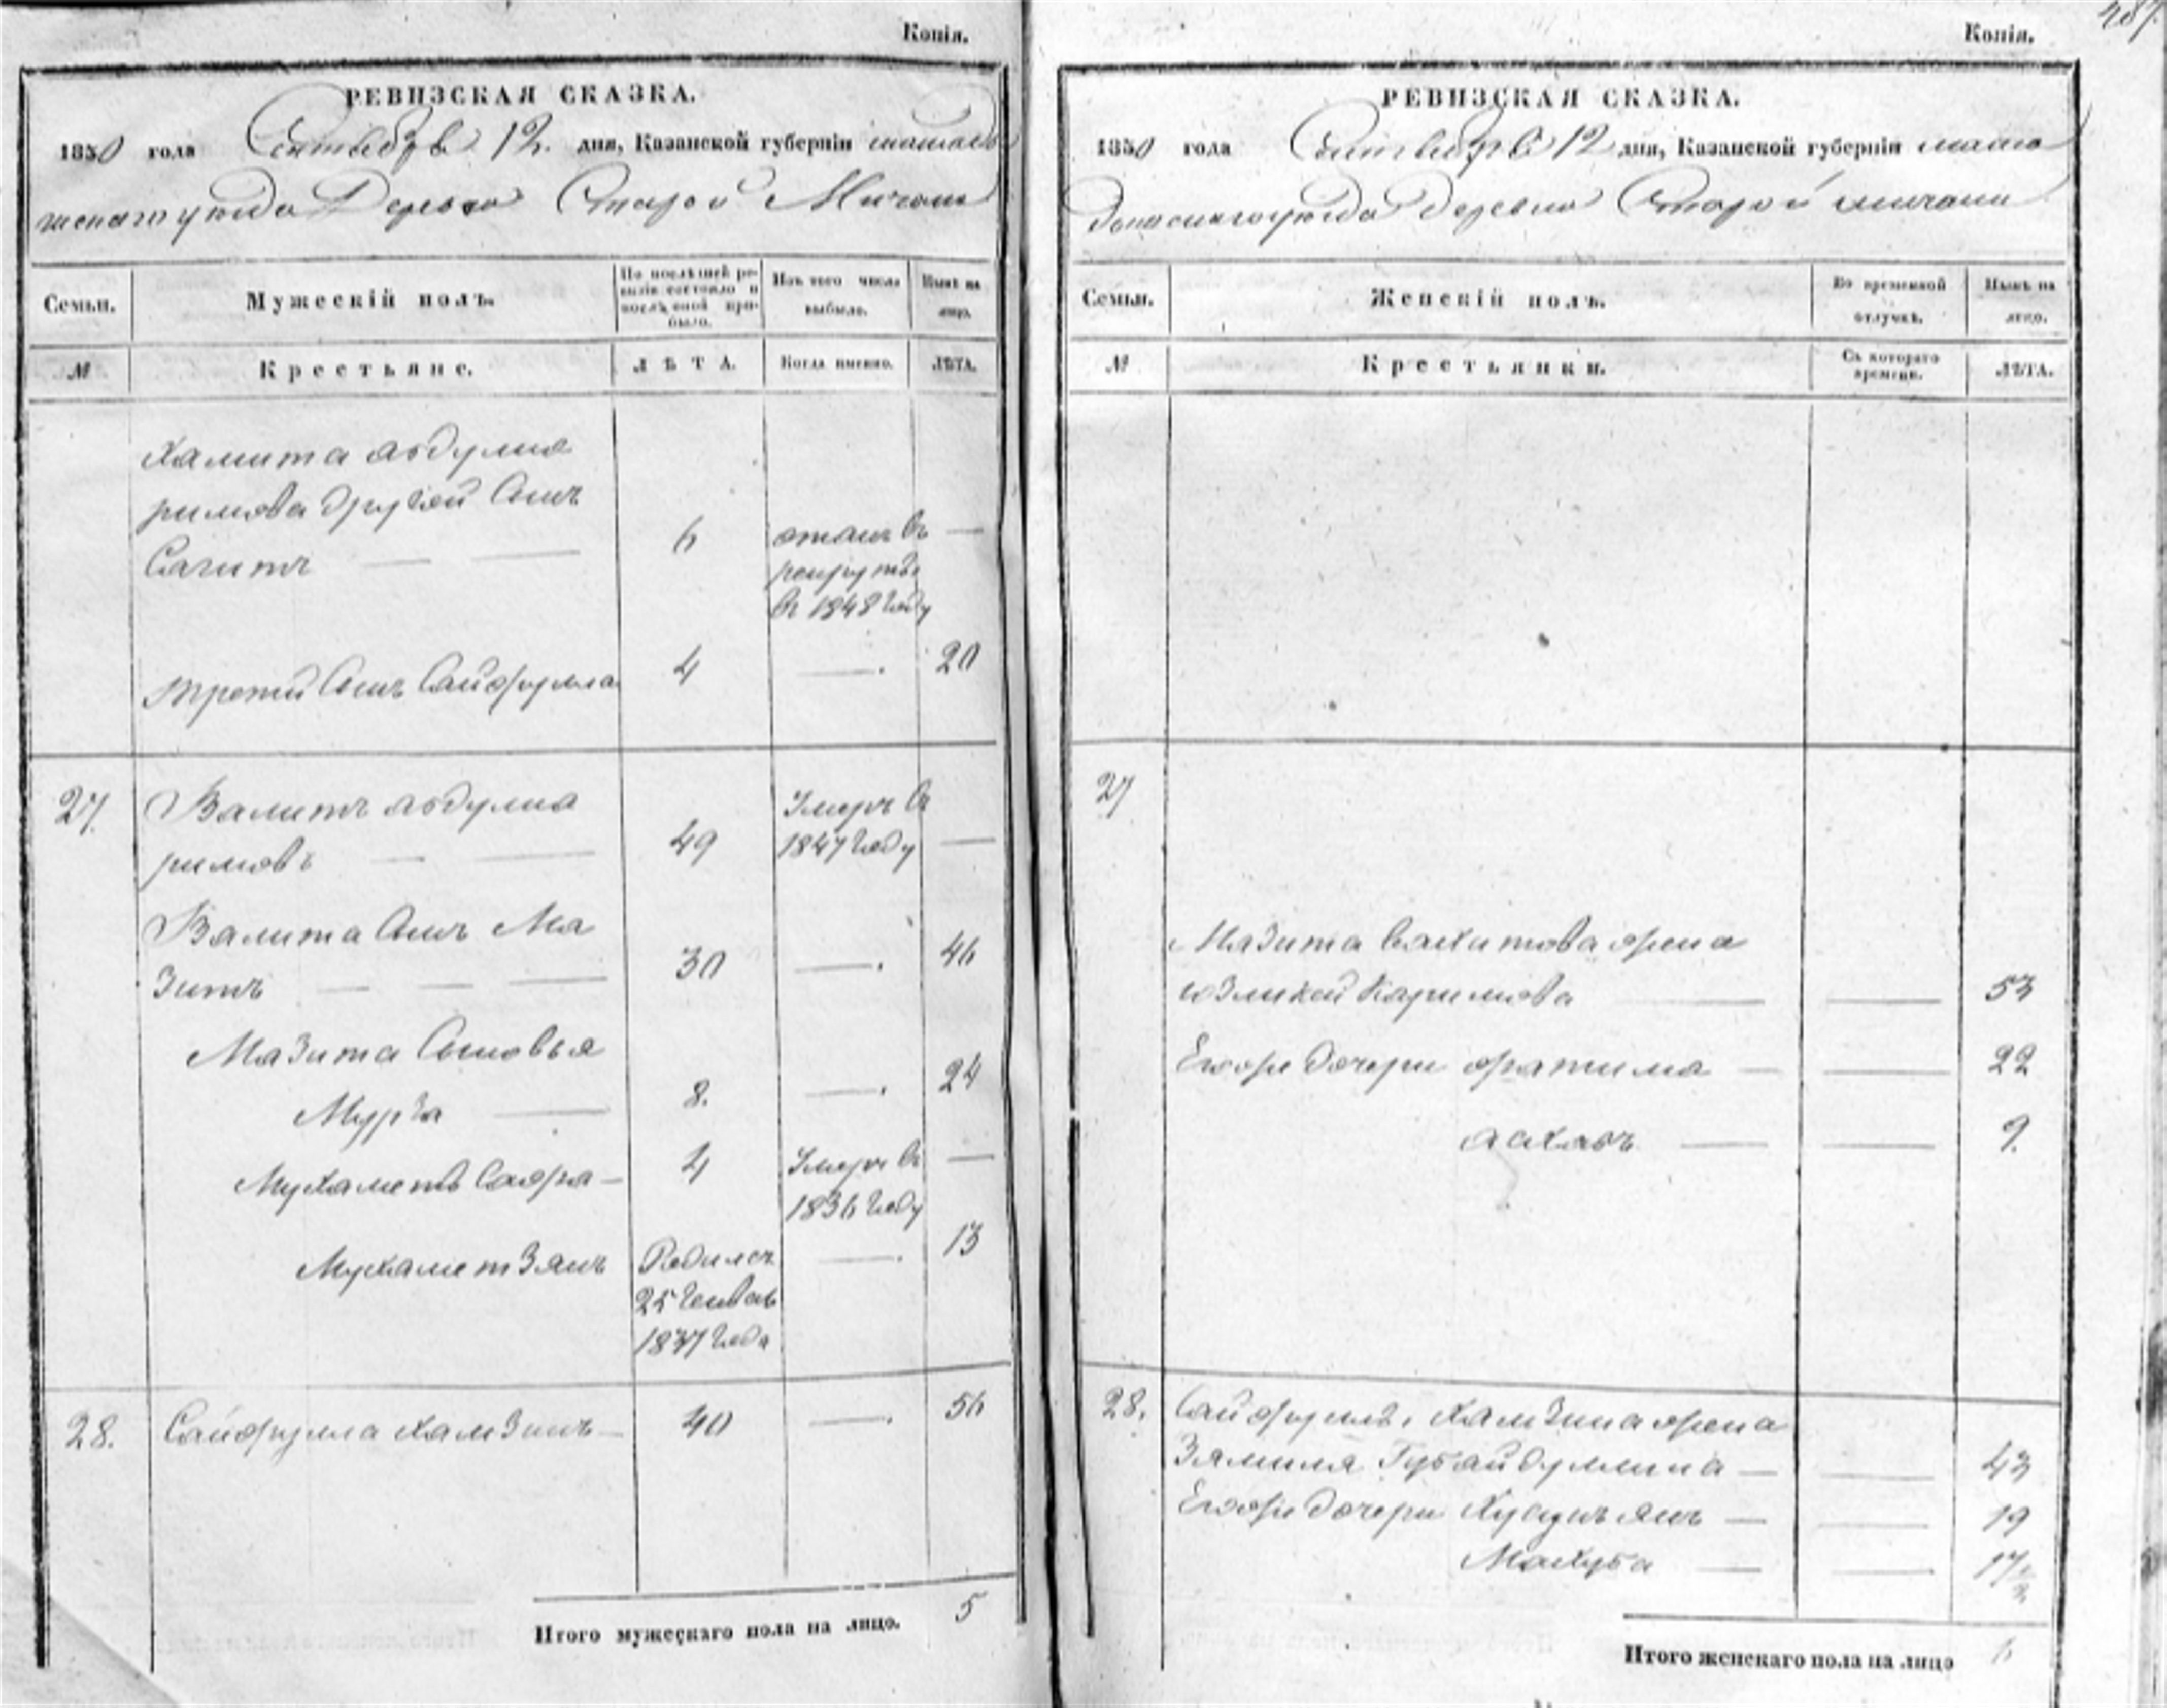 Копія.
РЕВИЗСКАЯ СКАЗКА.
1850 года Октября 12. дня, Казанской губерніи мамадъ
шскаго уѣзда Деревни Старой Мичани
Семьи. Мужескій полъ. По послѣдней ревизіи состояло и послѣ оной прибыло. Изъ того числа выбыло. Нынѣ на лицо.
№ Крестьяне. ЛѢТА. Когда именно. ЛѢТА.
Хамита абдулка
римова другой Сынъ
Сагитъ 6 отданъ въ —
рекруты
въ 1848 году
третій Сынъ Сайфулла 4 — 20
27. Валитъ абдулка
римовъ 49 Умеръ въ 1847 году —
Валита Сынъ Ма
зитъ 30 — 46
Мазита Сыновья
Мурза 8. — 24
Мухаметъ Сафа — 4 Умеръ въ 1836 году —
Мухаметзянъ Родился — 13
25 Генваря
1837 года
28. Сайфулла Хамзинъ — 40 — 56
Итого мужескаго пола на лицо. 5
Копія.
РЕВИЗСКАЯ СКАЗКА.
1850 года Октября 12 дня, Казанской губерніи мама
дышскаго уѣзда деревни Старой мичани
Семьи. Женскій полъ. Во временной отлучкѣ. Нынѣ на лицо.
№ Крестьянки. Съ котораго времени. ЛѢТА.
27
Мазита Вахитова жена
Каримова — — 53
Егоже дочери фатима — — 22
— — 9.
28. Сайфуллы Хамзина жена
Зямиля Губайдуллина — — 43
Егоже дочери — — 19
Махуба — — 17
Итого женскаго пола на лицо 6